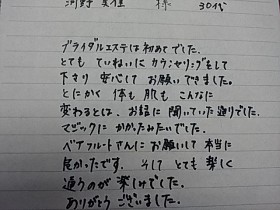 河野 美佳 様 30代
ブライダルエステは初めてでした。
とても ていねいに カウンセリングもして
下さり 安心して お願いできました。
とにかく 体も 肌も こんなに
変わるとは、お話に 聞いていた通りでした。
マジックに かかったみたいでした。
ベアフルートさんに お願いして 本当に
良かったです。そして とても 楽しく
通うのが 楽しみでした。
ありがとう ございました。